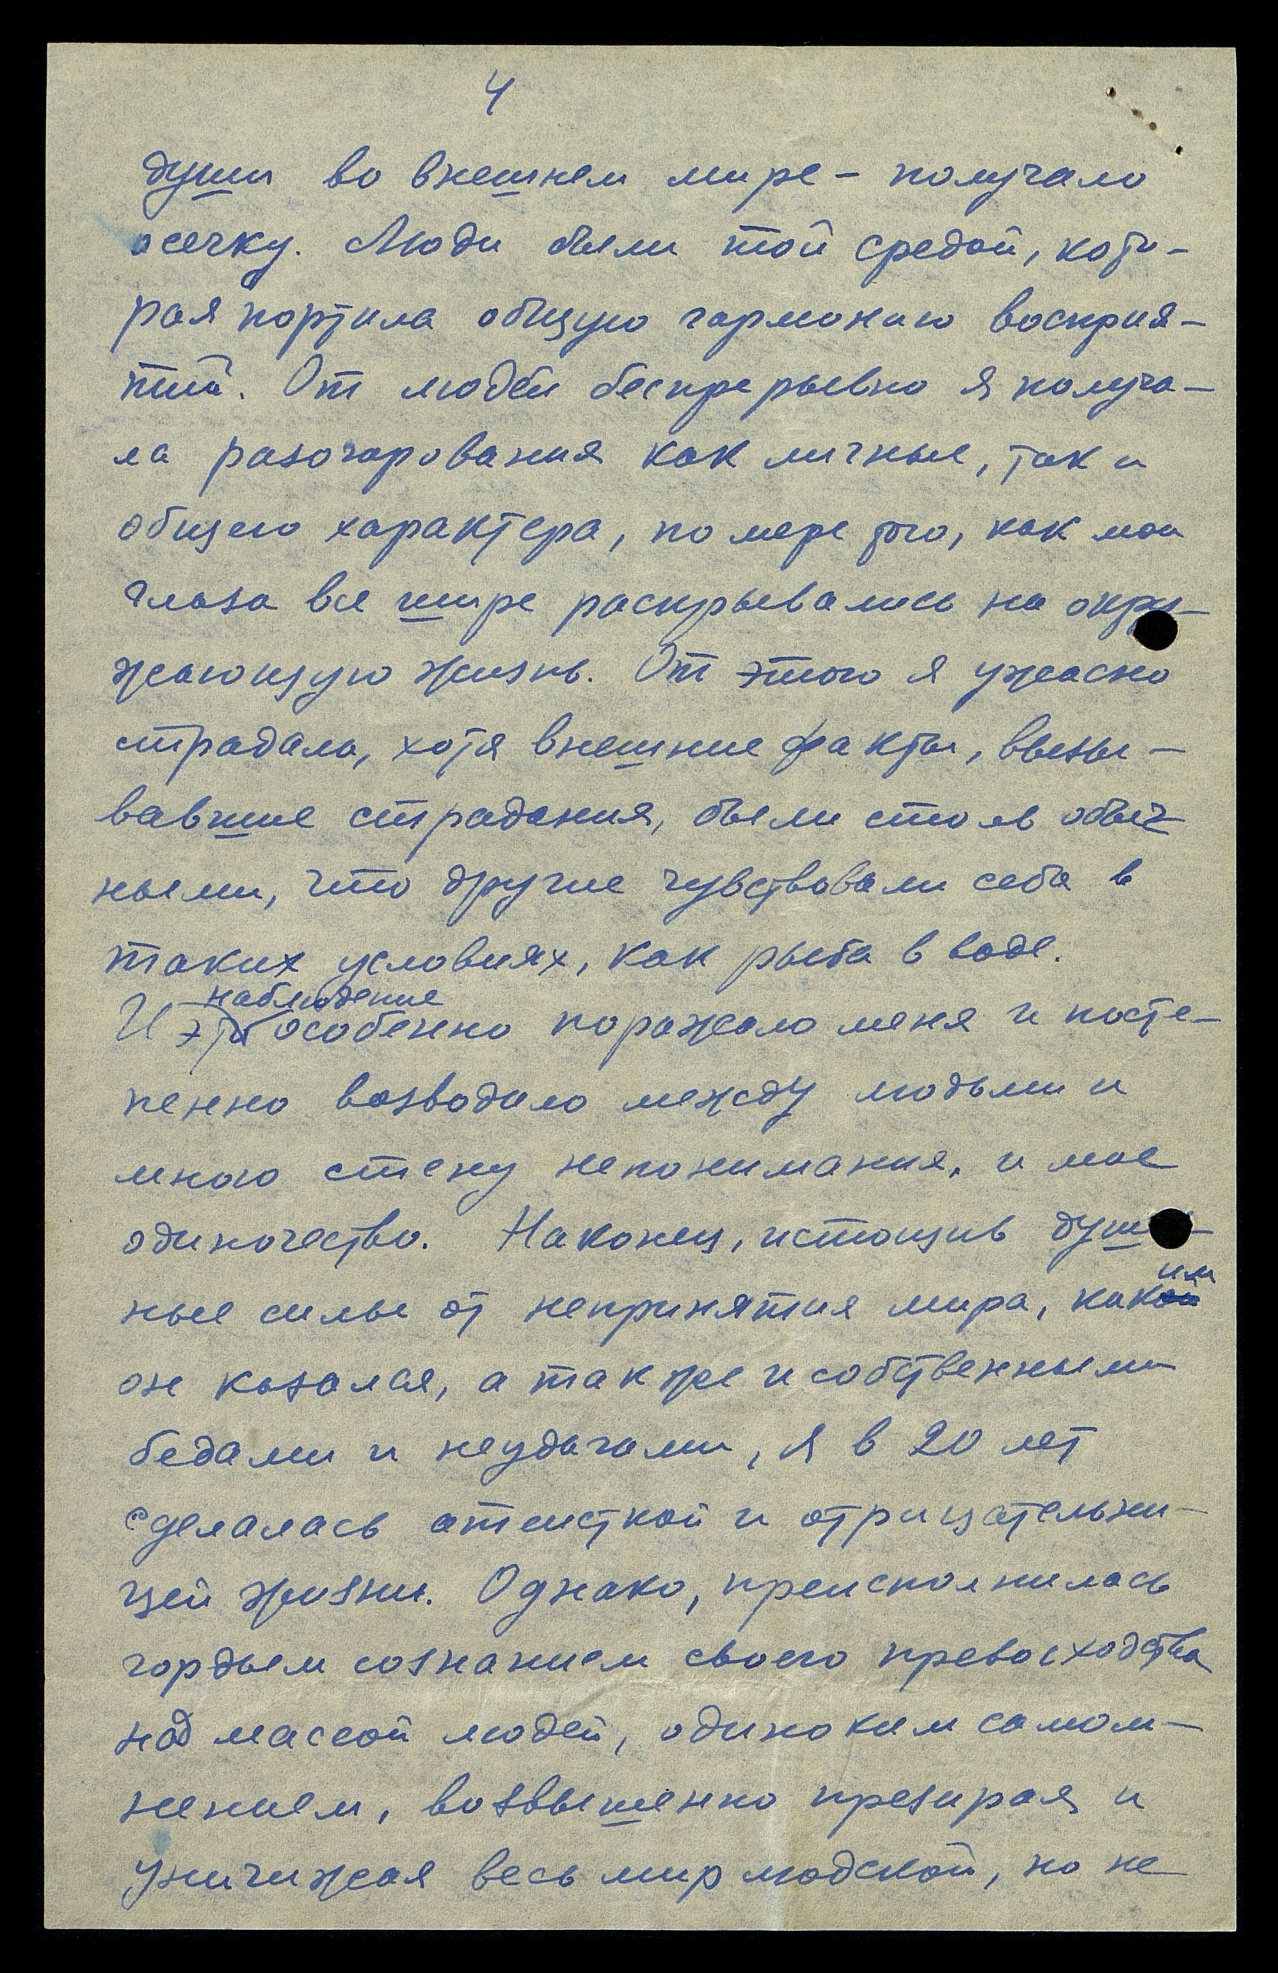 4
души во внешнем мире - получало
осечку. Люди были той средой, кото-
рая портила общую гармонию восприя-
тий. От людей беспрерывно я получа-
ла разочарования как личные, так и
общего характера, по мере того, как мои
глаза все шире раскрывались на окру-
жающую жизнь. От этого я ужасно
страдала, хотя внешние факты, вызы-
вавшие страдания, были столь обыч-
ными, что другие чувствовали себя в
таких условиях, как рыба в воде.
наблюдение
И это особенно поражало меня и посте-
пенно возводило между людьми и
мною стену непонимания, и мое
одиночество. Наконец, истощив душев-
ные силы от непринятия мира, каким
он казался, а также и собственными
бедами и неудачами, я в 20 лет
сделалась атеисткой и отрицательни-
цей жизни. Однако, преисполнилась
гордым сознанием своего превосходства
над массой людей, одиноким самом-
нением, возвышенно презирая и
уничижая весь мир людской, но не